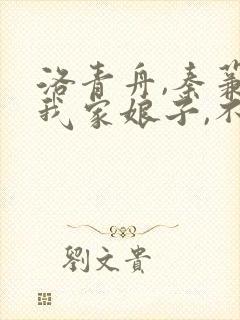 洛青舟,秦蒹
我家娘子,不
劉文貴